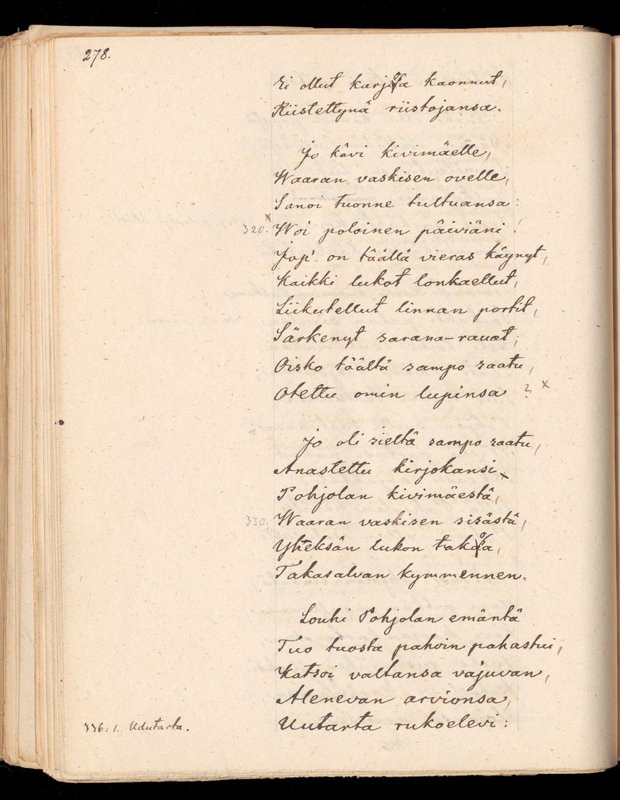 278.
Ei ollut karja kaonnut,
Kiistettynä riistojansa.
Jo kävi kivimäelle,
Waaran vaskisen ovelle,
Sanoi tuonne tultuansa:
320. Woi poloinen päiviäni!
Jop' on täällä vieras käynyt,
Kaikki lukot lonkaellut,
Liikutellut linnan portit,
Särkenyt sarana-rauat;
Oisko täältä sampo saatu,
Otettu omin lupinsa?
Jo oli sieltä sampo saatu,
Anastettu kirjokansi
Pohjolan kivimäestä,
330. Waaran vaskisen sisästä,
Yheksän lukon takoa,
Takasalvan kymmennen.
Louhi Pohjolan emäntä
Tuo tuosta pahoin pahastui,
Katsoi valtansa vajuvan,
Alenevan arvionsa,
Uutarta rukoelevi:
336: l. Udutarta.